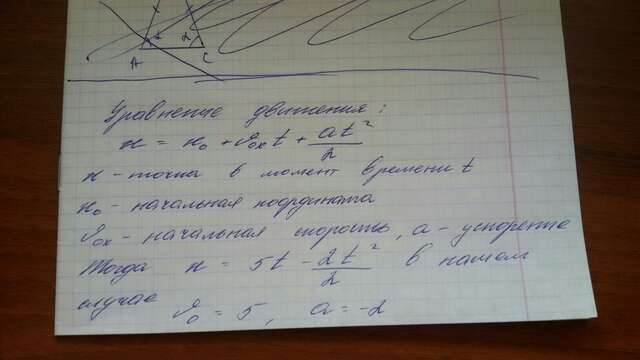 α
A C
Уравнение движения:
x = x₀ + v₀ₓt + at²/2
x - точка в момент времени t
x₀ - начальная координата
v₀ₓ - начальная скорость, a - ускорение
Тогда x = 5t - 2t²/2 в нашем
случае v₀ = 5, a = -2